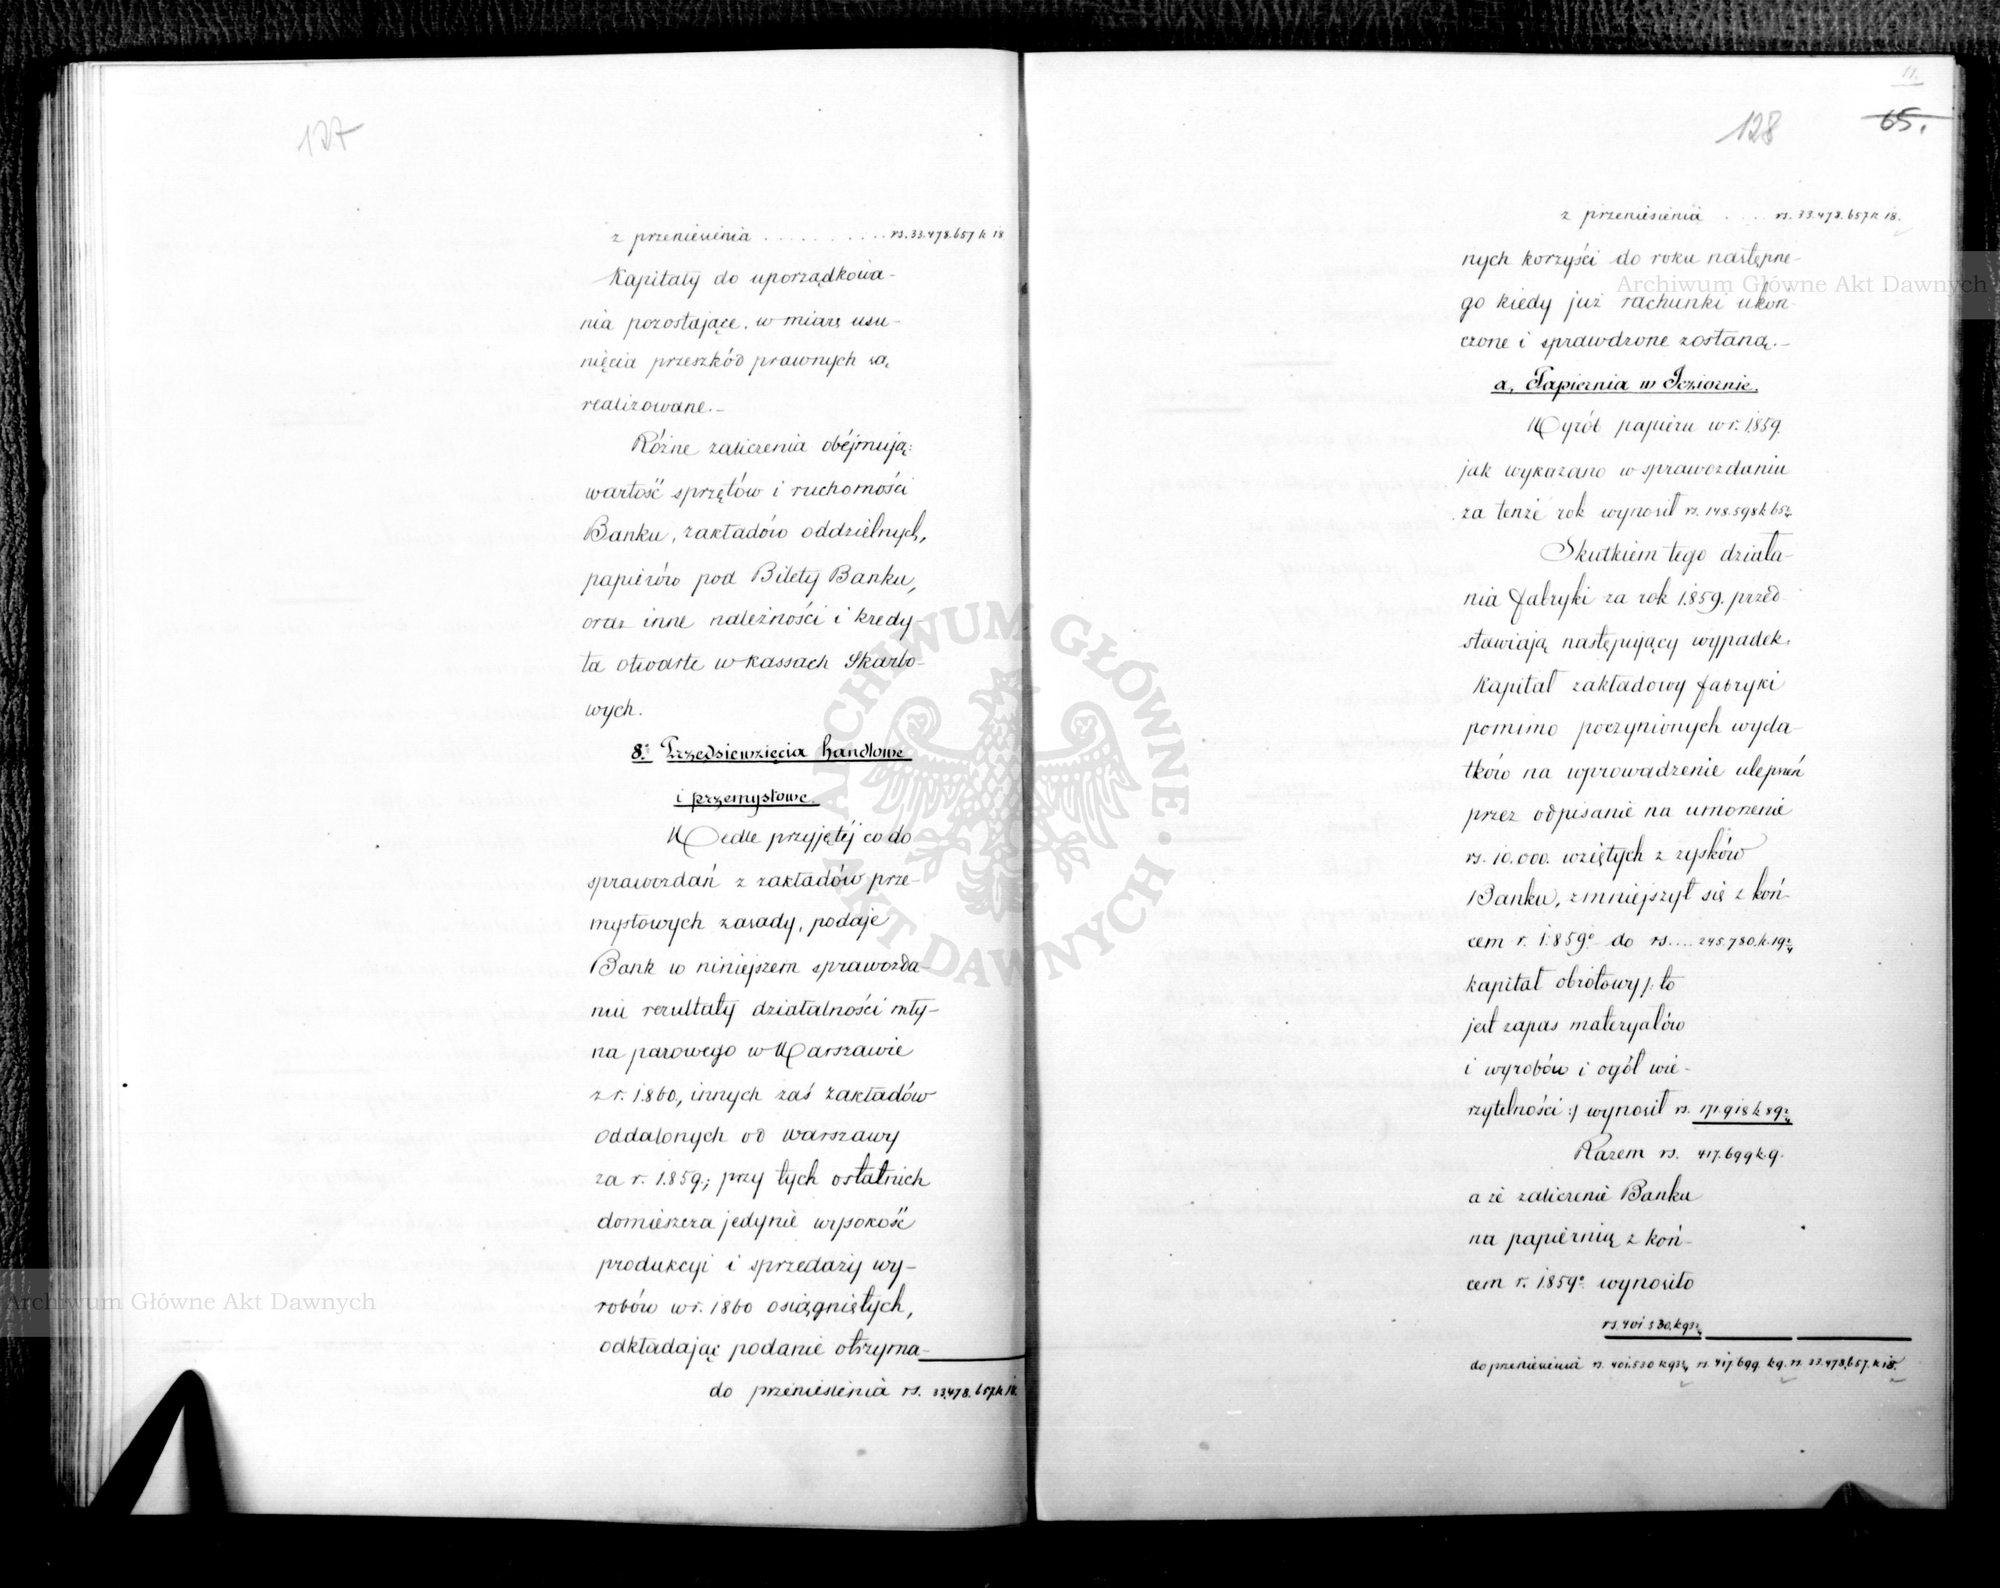 127
z przeniesienia . . . . . . . . . . rs. 33.478.657 k 18
Kapitały do uporządkowa-
nia pozostające, w miarę usu-
nięcia przeszkód prawnych są
realizowane.-
Różne zaliczenia obéjmują:
wartość sprzętów i ruchomości
Banku, zakładów oddzielnych,
papierów pod Bilety Banku,
oraz inne należności i kredy-
ta otwarte w kassach Skarbo-
wych.
8. Przedsiewzięcia handlowe
i przemysłowe.
Wedle przyjętéj co do
sprawozdań z zakładów prze-
mysłowych zasady, podaje
Bank w niniejszem sprawozda-
niu rezultaty działalności mły-
na parowego w Warszawie
z r. 1860, innych zaś zakładów
oddalonych od Warszawy
za r. 1859; przy tych ostatnich
domieszcza jedynie wysokość
produkcyi i sprzedaży wy-
robów w r. 1860 osiągniętych,
odkładając podanie otrzyma-
do przeniesienia rs. 33.478.657 k 18.
11.
128
65.
z przeniesienia . . . . rs. 33.478.657 k 18.
nych korzyści do roku następne-
go kiedy już rachunki ukoń-
czone i sprawdzone zostaną.-
a, Papiernia w Jeziornie.
Wyrób papieru w r. 1859.
jak wykazano w sprawozdaniu
za tenże rok wynosił rs. 148.598 k 65½
Skutkiem tego działa-
nia fabryki za rok 1859. przed-
stawiają następujący wypadek.
Kapitał zakładowy fabryki
pomimo poczynionych wyda-
tków na wprowadzenie ulepszeń
przez odpisanie na umorzenie
rs. 10.000. wziętych z zysków
Banku, zmniejszył się z koń-
cem r. 1859º do rs.... 245.780. k. 19
kapitał obrotowy /: to
jest zapas materyałów
i wyrobów i ogół wie-
rzytelności :/ wynosił rs. 171.918 k 89
Razem rs. 417.699 k 9.
a że zaliczenie Banku
na papiernią z koń-
cem r. 1859º wynosiło
rs. 401.530. k 93½
do przeniesienia rs. 401.530 k 93½ rs. 417.699. k 9. rs. 33.478.657. k 18.
Archiwum Główne Akt Dawnych
ARCHIWUM GŁÓWNE AKT DAWNYCH
Archiwum Główne Akt Dawnych